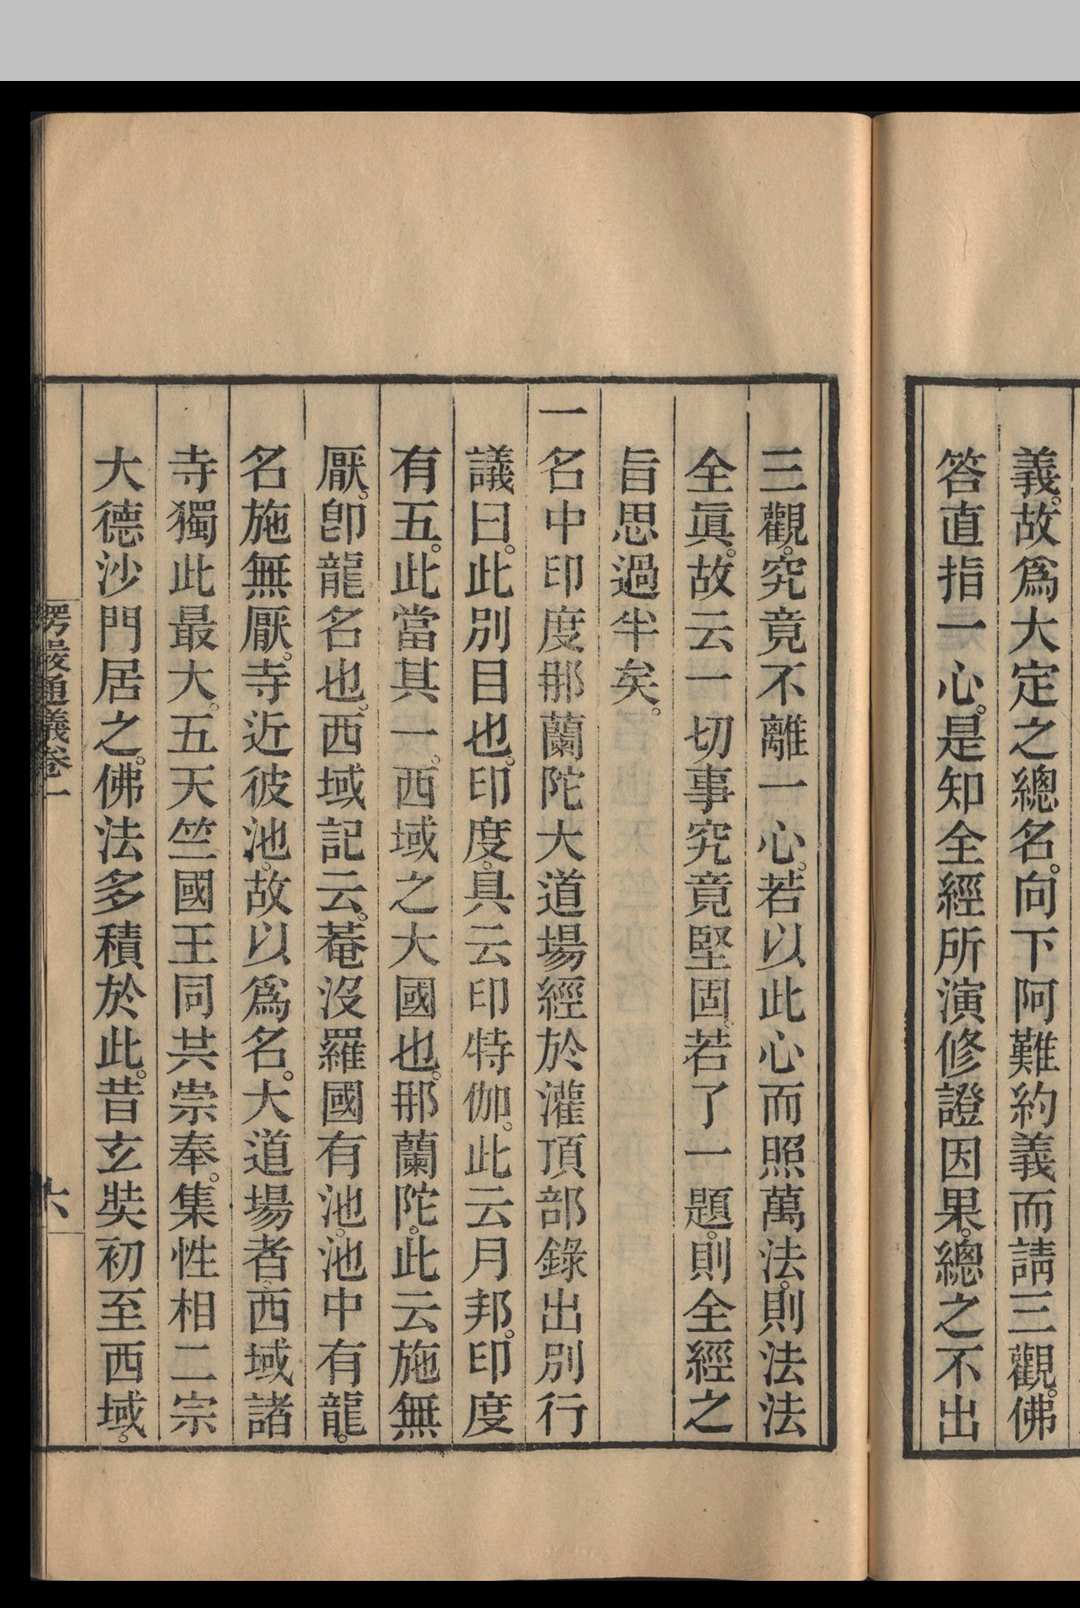 義。故爲大定之總名。向下阿難約義而請三觀。佛
答直指一心。是知全經所演修證因果。總之不出
三觀。究竟不離一心。若以此心而照萬法。則法法
全眞。故云一切事究竟堅固。若了一題。則全經之
旨思過半矣。
一名中印度那蘭陀大道場經於灌頂部錄出別行
議曰。此別目也。印度。具云印特伽。此云月邦。印度
有五。此當其一。西域之大國也。那蘭陀。此云施無
厭。卽龍名也。西域記云。菴沒羅國有池。池中有龍。
名施無厭。寺近彼池。故以爲名。大道場者。西域諸
寺獨此最大。五天竺國王同共崇奉。集性相二宗
大德沙門居之。佛法多積於此。昔玄奘初至西域。
楞嚴通議卷一
六